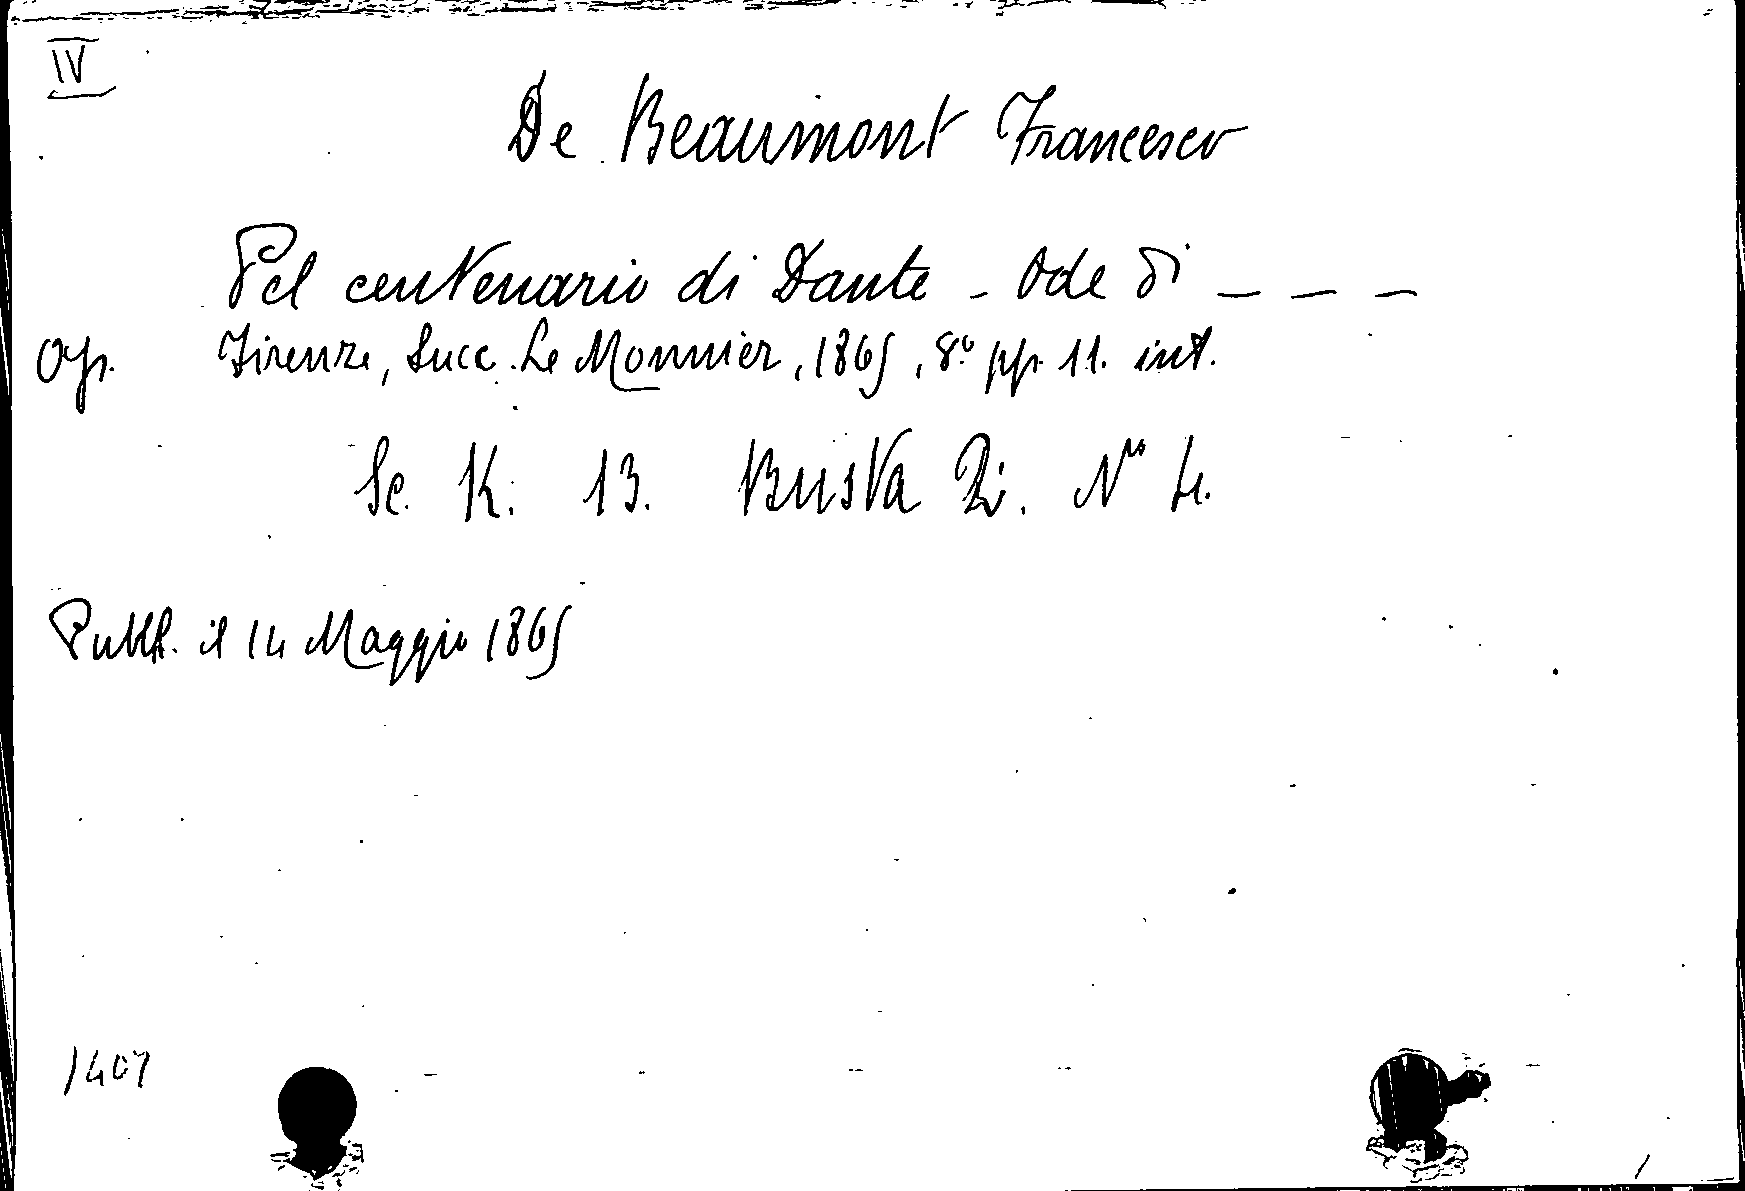 IV
De Beaumont Francesco
Pel centenario di Dante - Ode di _ _ _
Op. Firenze, Succ. Le Monnier, 1865, 8.º pp. 11. int.
Sc. K. 13. Busta N.º 4.
Pubb. il 14 Maggio 1865
1407